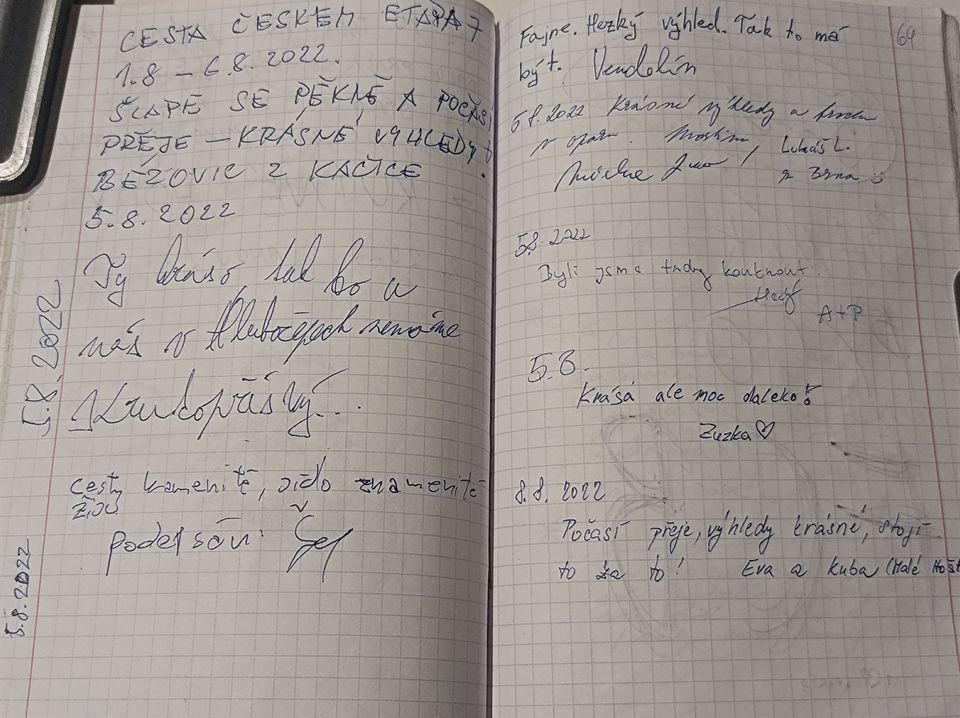 CESTA ČESKEM ETAPA 7
1.8 – 6.8.2022.
ŠLAPE SE PĚKNĚ A POČASÍ
PŘEJE – KRÁSNÉ VÝHLEDY
Z KAČICE
5.8.2022
Ty kráso, tak to u
nás v Hlubočepech nemáme
Krutopřísný...
5.8.2022
cesty kamenité, jídlo znamenité
podepsán:
5.8.2022
64
Fajne. Hezký výhled. Tak to má
být. Vendolín
5.8.2022 Krásné výhledy a
v Lukáš L.
z Brna
5.8.2022
Byli jsme tady kouknout.
A+P
5.8.
Krásá ale moc daleko!
Zuzka ♡
8.8.2022
Počasí přeje, výhledy krásné, stojí
to za to! Eva a Kuba (Malé Hošt